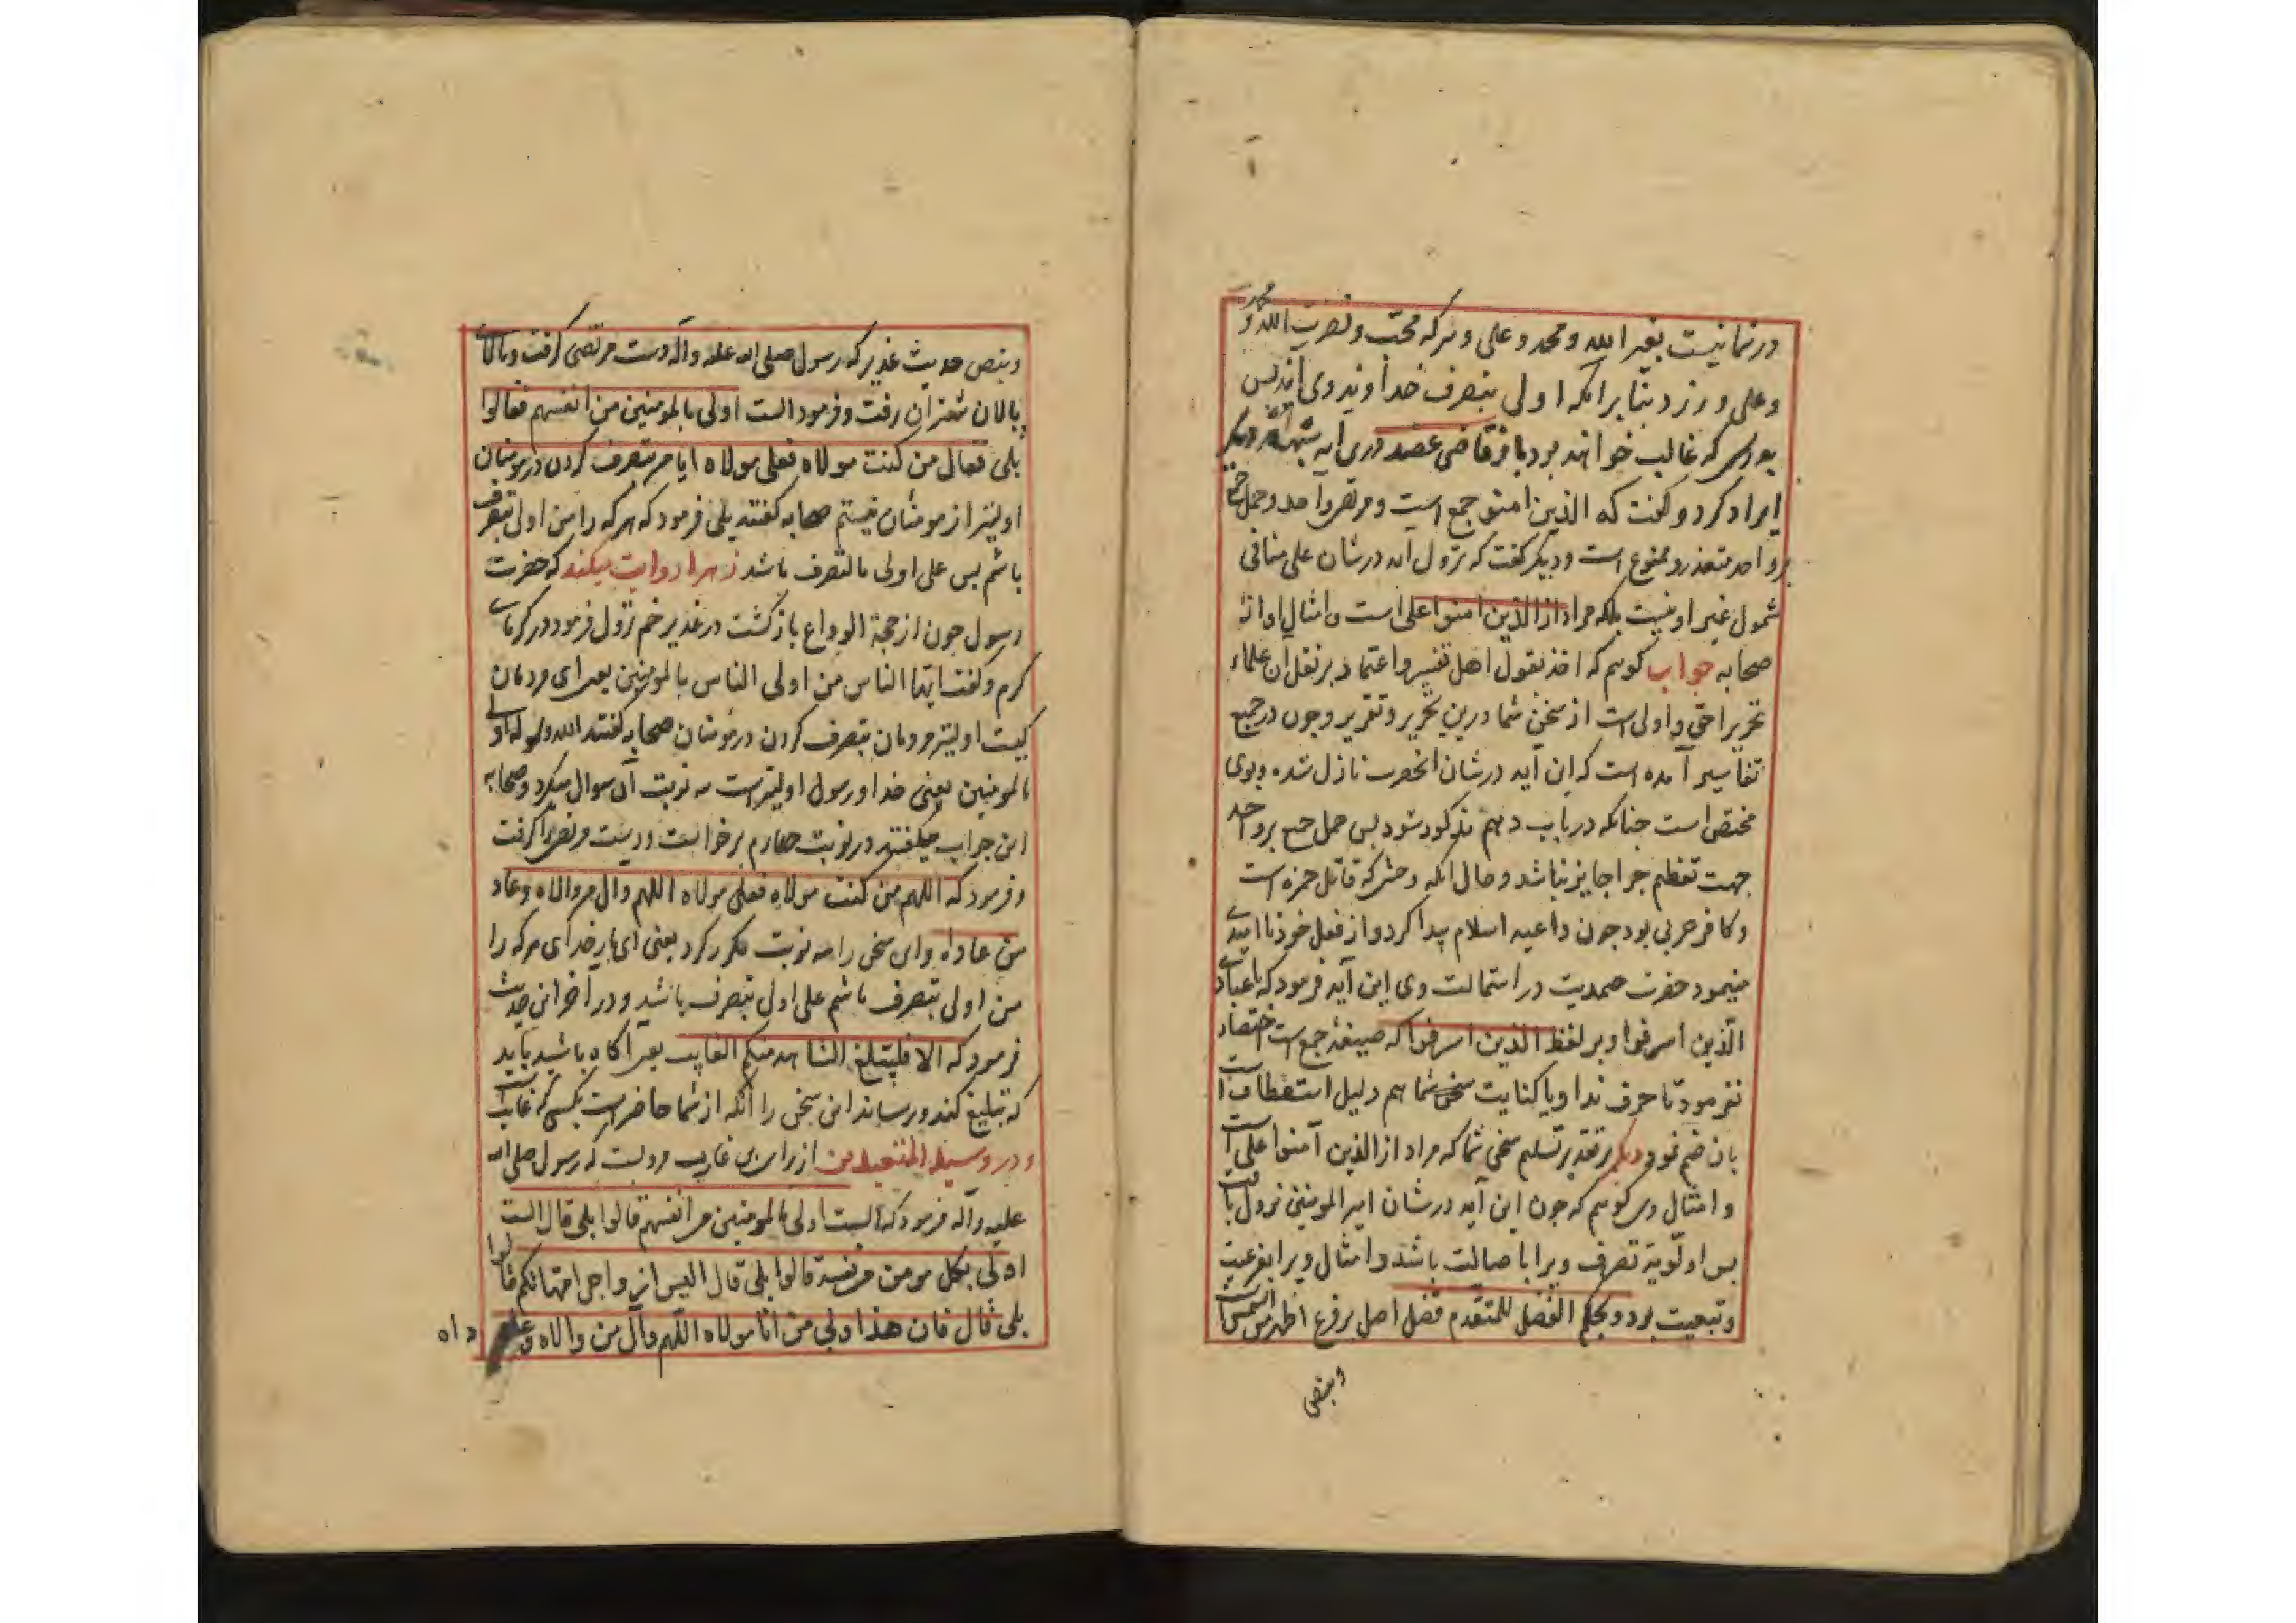 در شما نیست بغیر الله و محمد و علی و هرکه محبت و نصرت الله و محمد
و علی ورزد بنابرانکه اولی بتصرف خدا و یند وی اند پس
بودی که غالب خواهند بود باز قاضی عضد درین آیه شبهه دیگر
ایراد کرد و گفت که الذین امنو جمع است و مرتضی واحد و حمل جمع
بر واحد متعذر و ممنوع است و دیگر گفت که نزول آیه در شان علی منافی
شمول غیر او نیست بلکه مراد از الذین امنوا علی است و امثال او از
صحابه جواب گویم که اخذ بقول اهل تفسیر و اعتماد بر نقل ان علماء
تحریر احق و اولی است از سخن شما درین تحریر و تقریر و چون در جمیع
تفاسیر آمده است که این آیه در شان انحضرت نازل شده و بوی
مختص است چنانکه در باب دهم مذکور شود پس حمل جمع بر واحد
جهت تعظیم چرا جایز نباشد و حال انکه وحشی که قاتل حمزه است
و کافر حربی بود چون داعیه اسلام پیدا کرد و از فعل خود ناامیدی
مینمود حضرت صمدیت در استمالت وی این آیه فرمود که یا عبادی
الّذین اسرفوا و بر لفظ الذین اسرفوا که صیغهٔ جمع است اختصار
نفرمود تا حرف ندا و یا کنایت سخن شما هم دلیل استعطافست
بان ضم نمود دیگر بر تقدیر تسلیم سخن شما که مراد از الذین آمنوا علی است
و امثال وی گویم که چون این آیه در شان امیر المومنین نزول یافت
پس اولّویّة تصرف ویرا با صالت باشد و امثال ویرا بفرعیت
و تبعیت بود و بحکم الفضل للمتقدم فضل اصل بر فرع اظهر من الشمس است
وبنص
وبنص حدیث غدیر که رسول صلی الله علیه وآله دست مرتضی گرفت و بالای
پالان شتران رفت و فرمود الست اولی بالمومنین من انفسهم فقالوا
بلی فقال من کنت مولاه فعلی مولاه ایا من بتصرف کردن در مومنان
اولیتر از مومنان نیستم صحابه گفتند بلی فرمود که هرکه را من اولی بتصرف
باشم پس علی اولی بالتصرف باشد زهرا روایت میکند که حضرت
رسول چون از حجة الوداع بازگشت در غدیر خم نزول فرمود در گرمای
گرم و گفت ایها الناس من اولی الناس بالمومنین یعنی ای مردمان
کیست اولیتر مردمان بتصرف کردن در مؤمنان صحابه گفتند الله و رسوله اولی
بالمومنین یعنی خدا و رسول اولیتر است سه نوبت آن سوال میکرد و صحابه
این جواب میگفتند در نوبت چهارم برخواست و دست مرتضی را گرفت
و فرمود که اللهم من کنت مولاه فعلی مولاه اللهم وال من والاه وعاد
من عاداه و این سخن را سه نوبت مکرر کرد یعنی ای بار خدای هرکه را
من اولی بتصرف باشم علی اولی بتصرف باشد و در آخر این حدیث
فرمود که الا فلیبلغ الشاهد منکم الغایب یعنی آگاه باشید باید
که تبلیغ کند و رساند این سخن را انکه از شما حاضر است بکسی که غایبست
و در وسیلة المتعبدین از براء بن عازب مرویست که رسول صلی الله
علیه وآله فرمود که الست اولی بالمومنین من انفسهم قالوا بلی قال الست
اولی بکل مومن من نفسه قالوا بلی قال الیس ازواجی امهاتکم قالوا
بلی قال فان هذا ولی من انا مولاه اللّهم وال من والاه و عاد من عاداه